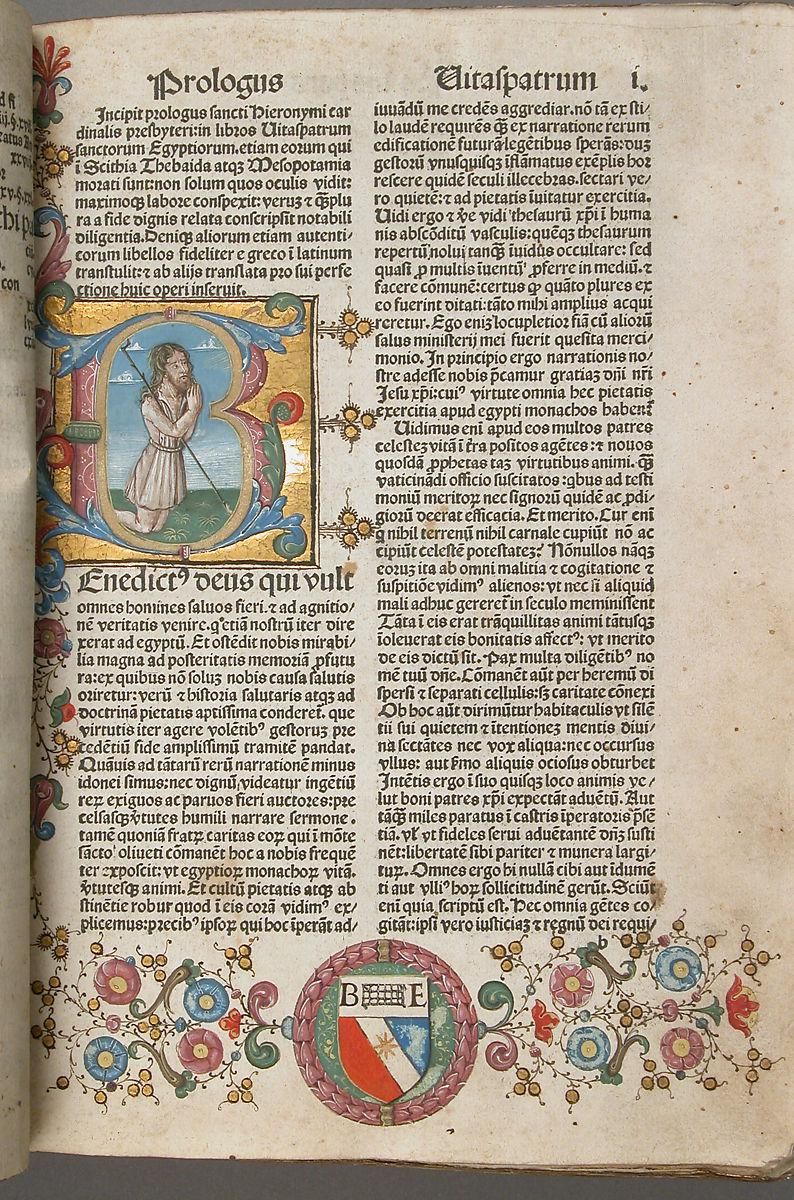 Prologus
Uitaspatrum i.
Incipit prologus sancti Hieronymi car
dinalis presbyteri: in libros Uitaspatrum
sanctorum Egyptiorum. etiam eorum qui
ī Scithia Thebaida atqꝫ Mesopotamia
morati sunt: non solum quos oculis vidit:
maximoqꝫ labore conspexit: veruꝫ ⁊ q̄ꝫplu
ra a fide dignis relata conscripsit notabili
diligentia. Deniqꝫ aliorum etiam autenti/
corum libellos fideliter e greco ī latinum
transtulit: ⁊ ab alijs translata pro sui perfe
ctione huic operi inseruit.
Enedictꝰ deus qui vult
omnes homines saluos fieri. ⁊ ad agnitio/
nē veritatis venire. qͥ etiā nostrū iter dire
xerat ad egyptū. Et ostēdit nobis mirabi/
lia magna ad posteritatis memoriā ꝓfutu
ra: ex quibus nō soluꝫ nobis causa salutis
oriretur: verū ⁊ historia salutaris atqꝫ ad
doctrinā pietatis aptissima conderet̄. que
virtutis iter agere volētibꝰ gestoruꝫ pre
cedētiū fide amplissimū tramitē pandat.
Quāuis ad tātarū rerū narrationē minus
idonei simus: nec dignū videatur ingētiū
reꝝ exiguos ac paruos fieri auctores: pre
celsasqꝫ v̓tutes humili narrare sermone.
tamē quoniā fratꝝ caritas eoꝝ qui ī mōte
sācto oliueti cōmanēt hoc a nobis frequē
ter exposcit: vt egyptioꝝ monachoꝝ vitā.
v̓tutesqꝫ animi. Et cultū pietatis atqꝫ ab
stinētie robur quod ī eis corā vidimꝰ ex/
plicemus: precibꝰ ipsoꝝ qui hoc īperāt ad/
iuuādū me credēs aggrediar. nō tā ex sti/
lo laudē requirēs q̄ꝫ ex narratione rerum
edificationē futurā legētibus sperās: duꝫ
gestorū vnusquisqꝫ īflāmatus exēplis hor
rescere quidē seculi illecebras. sectari ve/
ro quietē: ⁊ ad pietatis īuitatur exercitia.
Uidi ergo ⁊ v̓e vidi thesaurū xp̄i ī huma
nis abscōditū vasculis: quēqꝫ thesaurum
repertū nolui tanq̄ꝫ īuidꝰ occultare: sed
quasi ꝓ multis īuentū ꝓferre in mediū. ⁊
facere cōmunē: certus ꝙ quāto plures ex
eo fuerint ditati: tāto mihi amplius acqui
reretur. Ego eniꝫ locupletior fiā cū aliorū
salus ministerij mei fuerit quesita merci/
monio. In principio ergo narrationis no/
stre adesse nobis p̄camur gratiaꝫ dn̄i nr̄i
Jesu xp̄i: cuiꝰ virtute omnia hec pietatis
exercitia apud egypti monachos habent̄
Uidimus enī apud eos multos patres
celesteꝫ vitā ī t̓ra positos agētes: ⁊ nouos
quosdā ꝓphetas taꝫ virtutibus animi. q̄ꝫ
vaticinādi officio suscitatos: qͥbus ad testi
moniū meritoꝝ nec signorū quidē ac ꝓdi/
giorū deerat efficacia. Et merito. Cur enī
q̇ nihil terrenū nihil carnale cupiūt nō ac
cipiūt celestē potestateꝫ? Nōnullos nāqꝫ
eoruꝫ ita ab omni malitia ⁊ cogitatione ⁊
suspitiōe vidimꝰ alienos: vt nec si aliquid
mali adhuc gereret̄ in seculo meminissent
Tāta ī eis erat trāquillitas animi tātusqꝫ
īoleuerat eis bonitatis affectꝰ: vt merito
de eis dictū sit. Pax multa diligētibꝰ no
mē tuū dn̄e. Cōmanēt aūt per heremū di
spersi ⁊ separati cellulis: sꝫ caritate cōnexi
Ob hoc aūt dirimūtur habitaculis vt silē
tij sui quietem ⁊ ītentionem mentis diui/
na sectātes nec vox aliqua: nec occursus
vllus: aut sermo aliquis ociosus obturbet
Intētis ergo ī suo quisqꝫ loco animis ve/
lut boni patres xp̄i expectāt aduētū. Aut
tāq̄ꝫ miles paratus ī castris īperatoris p̄sē
tiā. vl̓ vt fideles serui aduētantē dn̄ꝫ susti
nēt: libertatē sibi pariter ⁊ munera largi/
tuꝝ. Omnes ergo hi nullā cibi aut īdumē
ti aut ylliꝰ hoꝝ sollicitudinē gerūt. Sciūt
enī quia scriptū est. Hec omnia gētes co/
gitāt: ipsi vero iusticiaꝫ ⁊ regnū dei requi/
b
B E